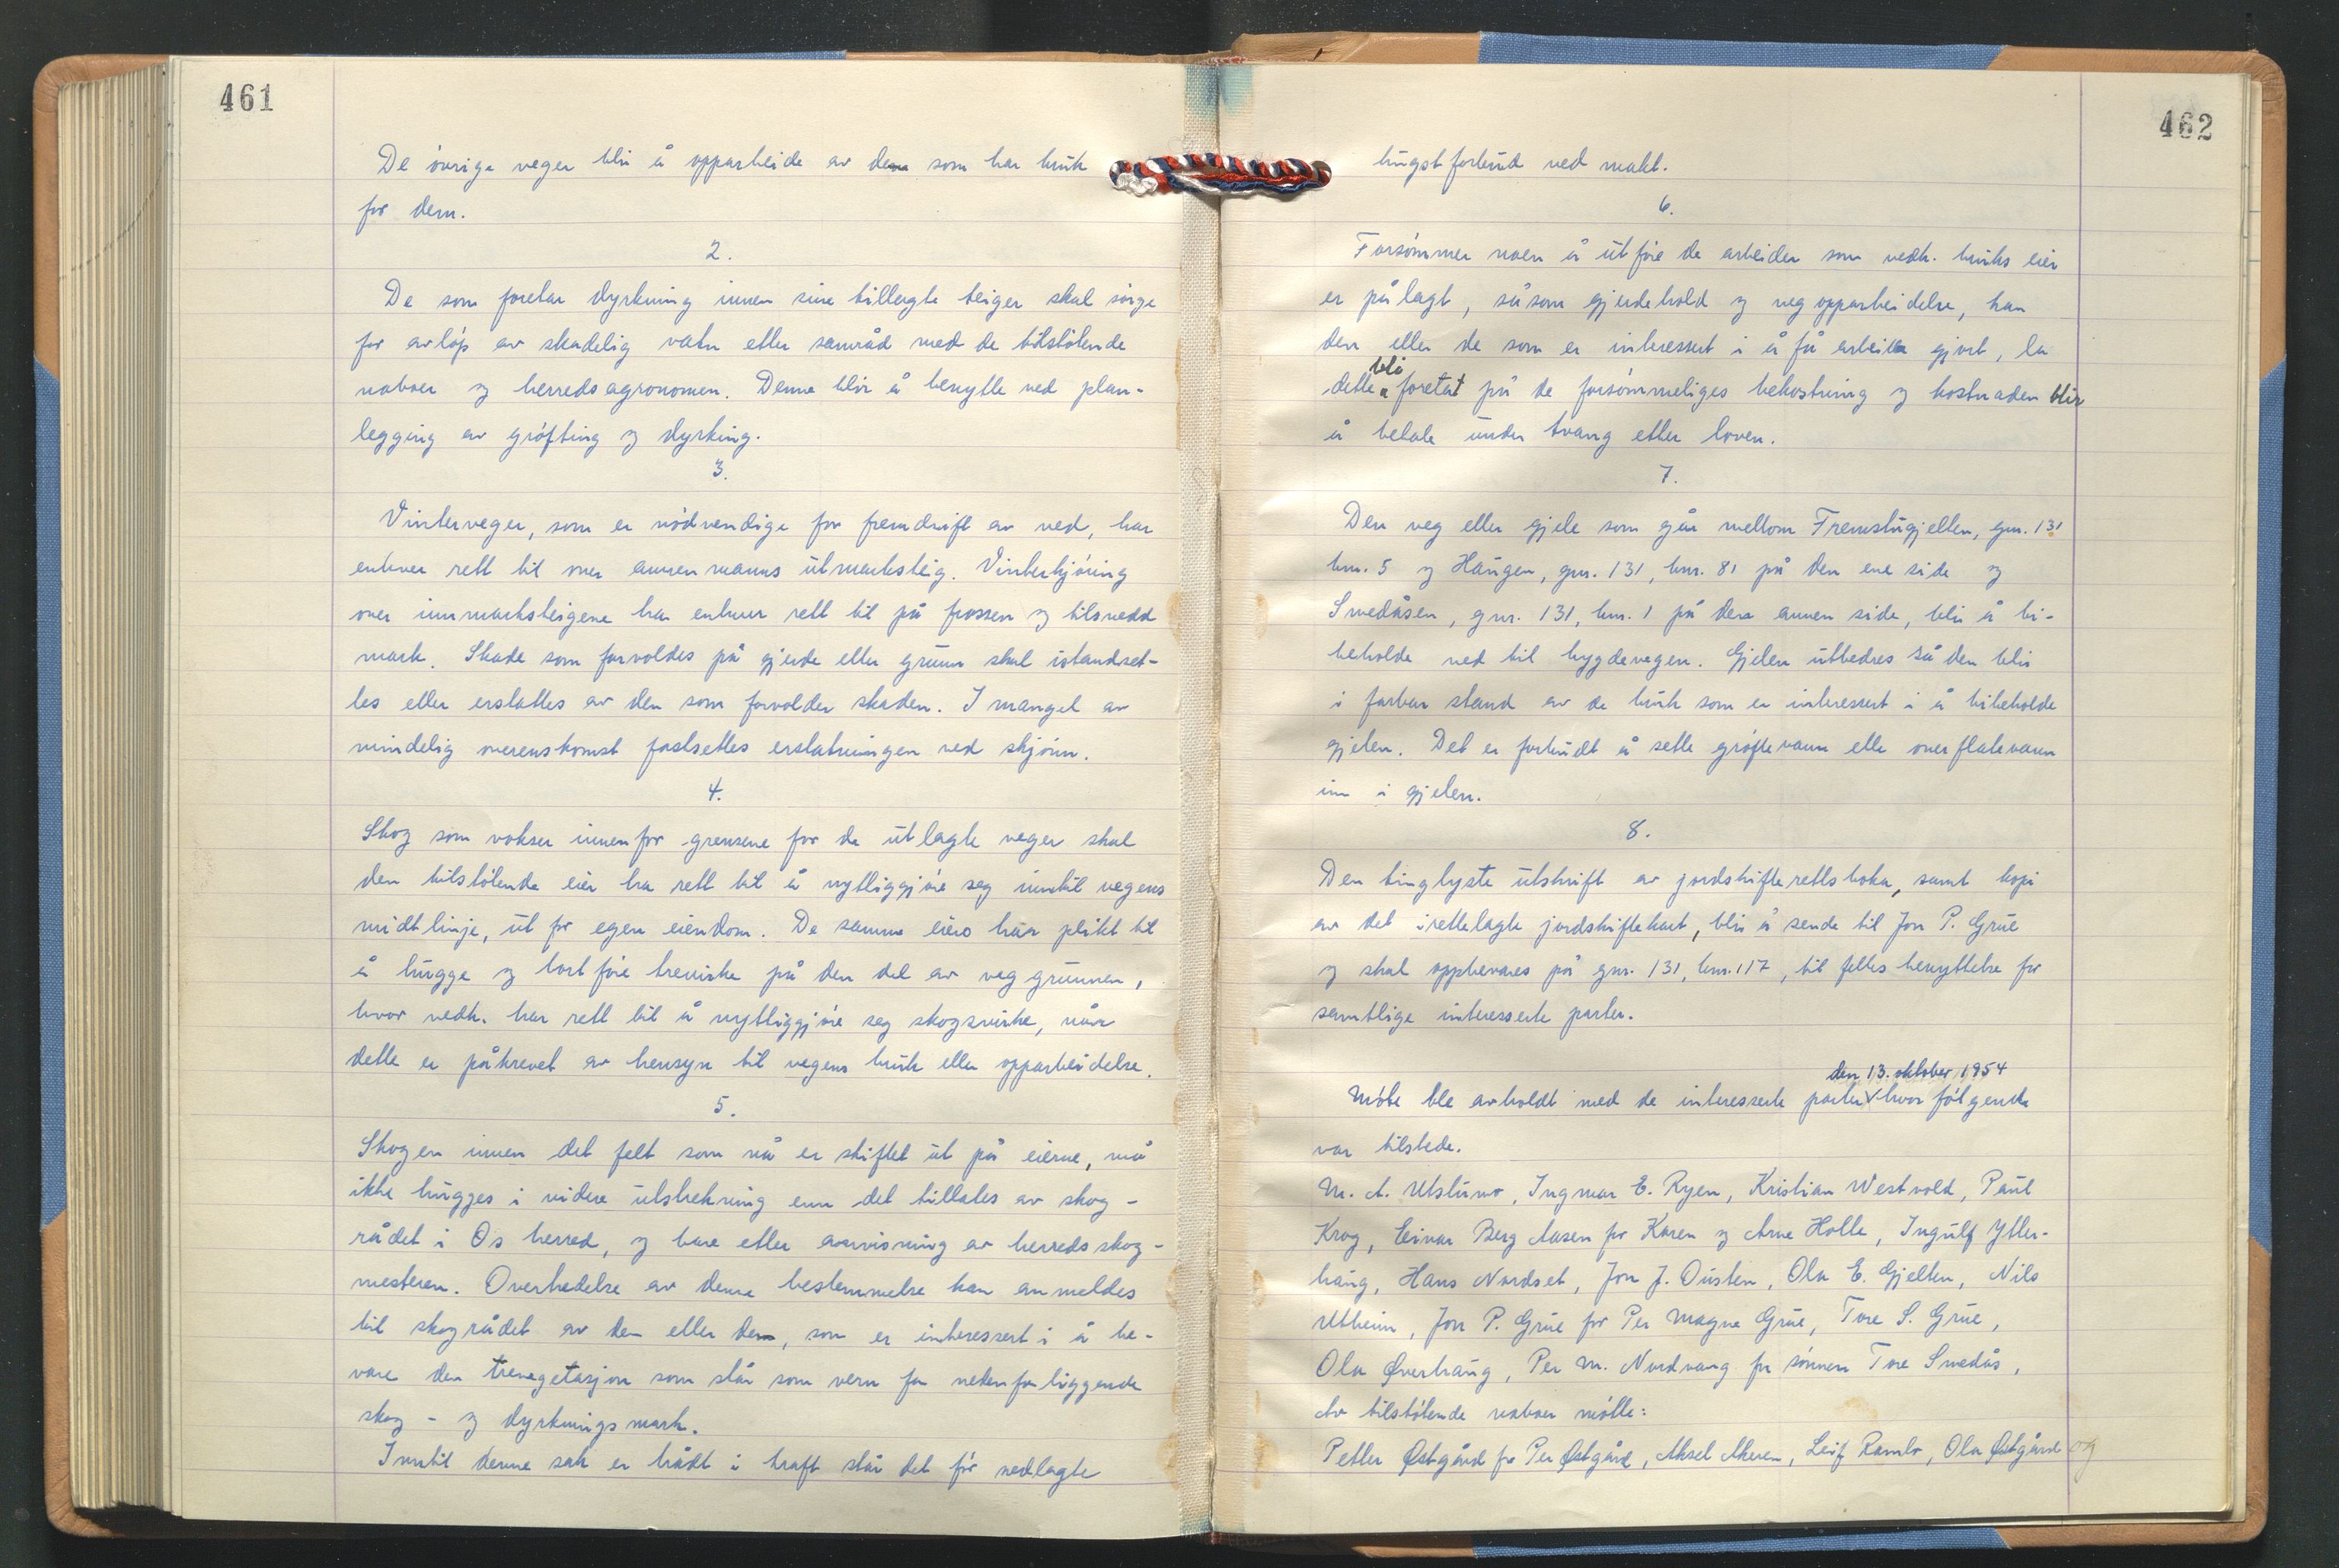 461
De övrige veger blir å opparbeide av dem som har bruk
for dem.
2.
De som foretar dyrkning innen sine tillagte teiger skal sörge
for avlöp av skadelig vatn etter samråd med de tilstötende
naboer og herredsagronomen. Denne blir å benytte ved plan-
legging av gröfting og dyrking.
3.
Vinterveger, som er nödvendige for fremdrift av ved, har
enhver rett til over annen manns utmarksteig. Vinterkjöring
over innmarksteigene har enhver rett til på frossen og tilsnedd
mark. Skade som forvoldes på gjerde eller grunn skal istandset-
tes eller erstattes av den som forvolder skaden. I mangel av
mindelig overenskomst fastsettes erstatningen ved skjönn.
4.
Skog som vokser innenfor grensene for de utlagte veger skal
den tilstötende eier ha rett til å nyttiggjöre seg inntil vegens
midtlinje, ut for egen eiendom. De samme eiere har plikt til
å hugge og bortföre trevirke på den del av veggrunnen,
hvor vedk. har rett til å nyttiggjöre seg skogsvirke, når
dette er påkrevet av hensyn til vegens bruk eller opparbeidelse.
5.
Skogen innen det felt som nå er skiftet ut på eierne, må
ikke hugges i videre utstrekning enn det tillates av skog-
rådet i Os herred, og bare etter anvisning av herredsskog-
mesteren. Overtredelse av denne bestemmelse kan anmeldes
til skogrådet av den eller dem, som er interessert i å be-
vare den trevegetasjon som står som vern for nedenforliggende
skog- og dyrkningsmark.
Inntil denne sak er trådt i kraft står det för nedlagte
462
hugstforbud ved makt.
6.
Forsömmer noen å utföre de arbeider som vedk. bruks eier
er pålagt, såsom gjerdehold og vegopparbeidelse, kan
den eller de som er interessert i å få arbeidet gjort, la
dette bli foretat på de forsömmeliges bekostning og kostnaden blir
å betale under tvang etter loven.
7.
Den veg eller gjele som går mellom Fremstugjelten, gnr. 131
bnr. 5 og Haugen, gnr. 131, bnr. 81 på den ene side og
Smedåsen, gnr. 131, bnr. 1 på den annen side, blir å bi-
beholde ned til bygdevegen. Gjelen utbedres så den blir
i farbar stand av de bruk som er interessert i å bibeholde
gjelen. Det er forbudt å sette gröftevann eller overflatevann
inn i gjelen.
8.
Den tinglyste utskrift av jordskifterettsboka, samt kopi
av det irettelagte jordskiftekart, blir å sende til Jon P. Grue
og skal oppbevares på gnr. 131, bnr. 117, til felles benyttelse for
samtlige interesserte parter.
Möte ble avholdt med de interesserte parter den 13. oktober 1954 hvor fölgende
var tilstede.
M. A. Utstumo, Ingmar E. Ryen, Kristian Westvold, Paul
Krog, Einar Berg Aasen for Karen og Arne Holte, Ingulf Ytter-
haug, Hans Nordset, Jon J. Ousten, Ola E. Gjelten, Nils
Utheim, Jon P. Grue for Per Magne Grue, Tore S. Grue,
Ola Øverhaug, Per M. Nordvang for sönnen Tore Smedås,
Av tilstötende naboer mötte:
Petter Østgård for Per Østgård, Aksel Akeren, Leif Rambr, Ola Østgård og